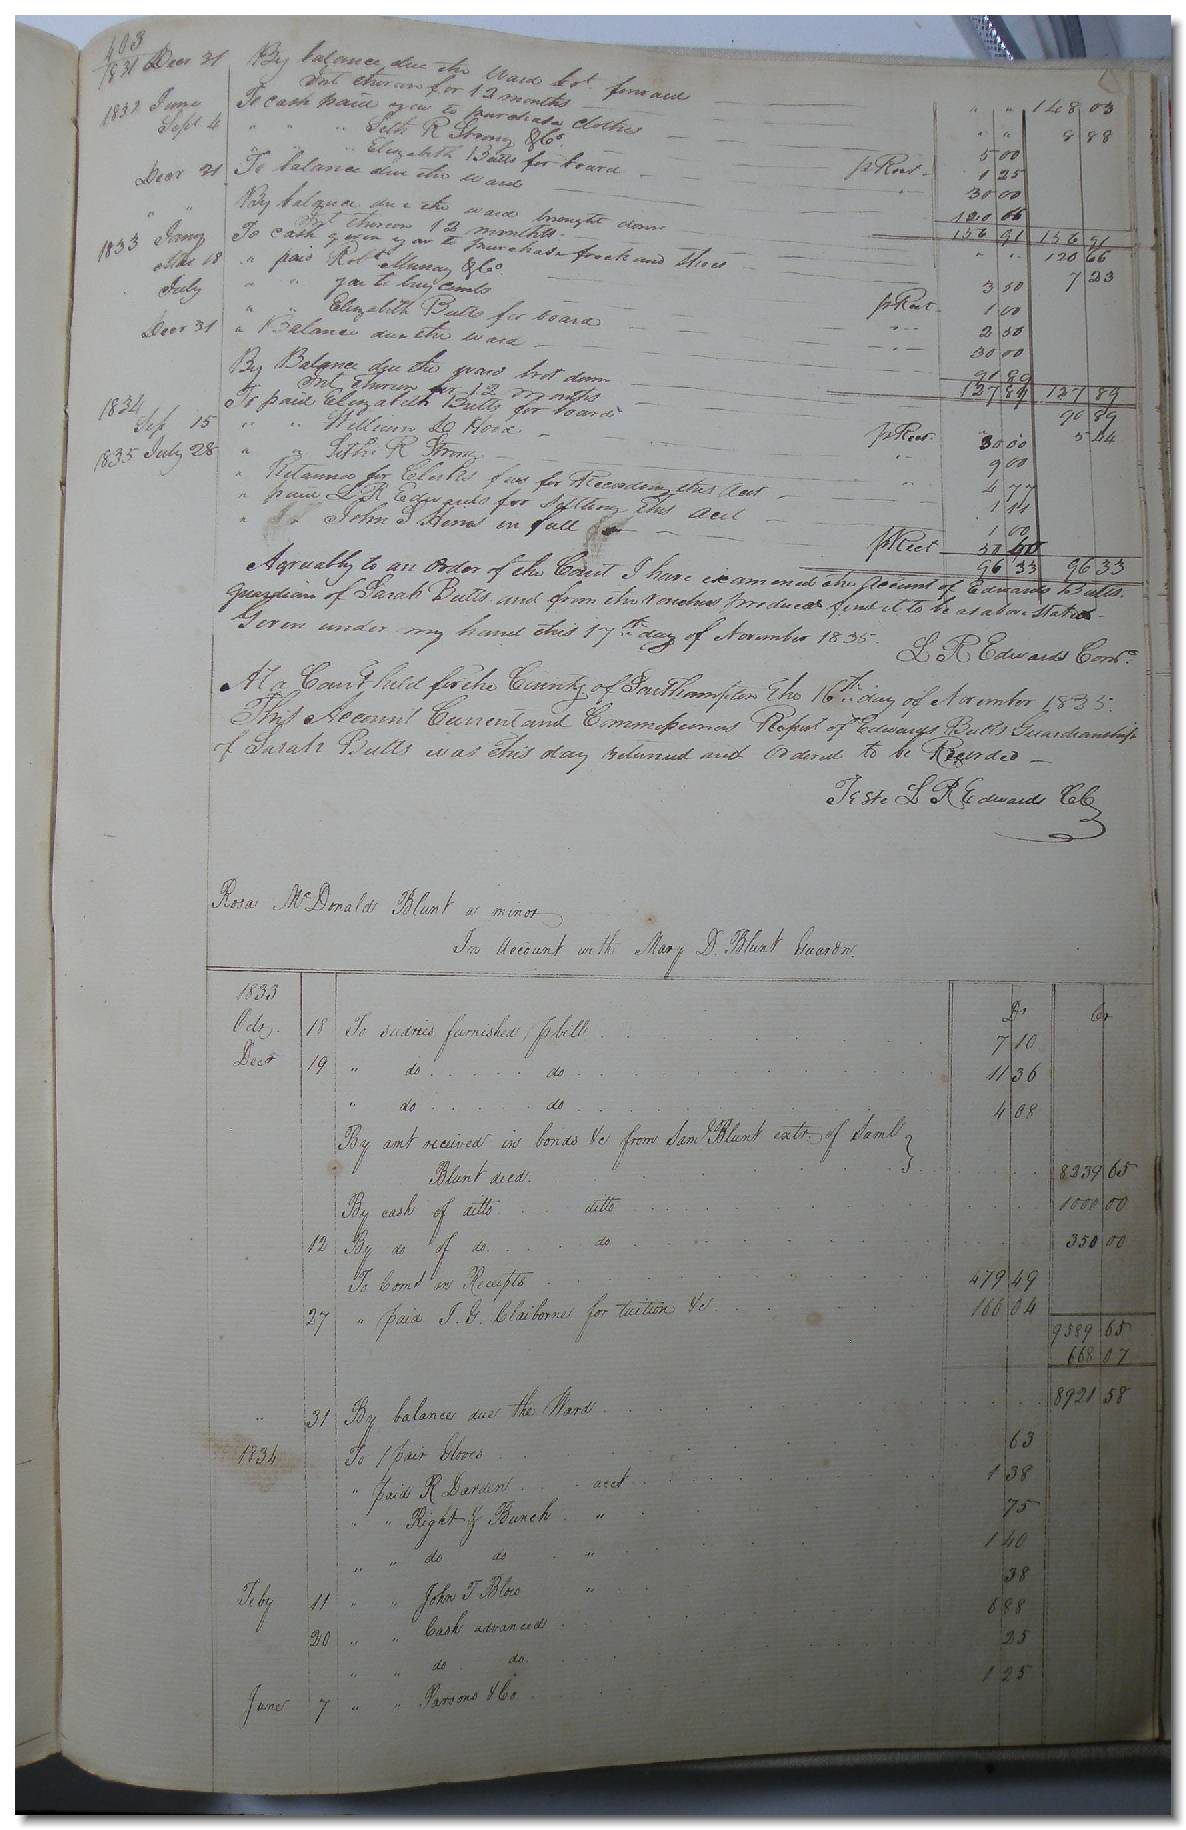 403
1831 Decr 31 By balance due the Ward bro't forward " " 148 03
Int thereon for 12 months " " 8 88
1832 June To cash paid you to purchase clothes 5 00
Sept 4 " " " Seth R Strong & Co. pRect. 1 25
" " " Elizabeth Butts for board " 30 00
Decr 31 To balance due the ward 120 66
156 91 156 91
" " By balance due the ward brought down " " 120 66
Int thereon 12 months 7 23
1833 Jany To cash given you to purchase frock and Shoes 3 50
Mar 18 " paid Robt Murray & Co pRect. 1 00
July " " you to buy combs " " 2 50
" " Elizabeth Butts for board " " 30 00
Decr 31 " Balance due the ward 91 89
127 89 127 89
By Balance due the ward brot down 90 89
Int. thereon for 12 months 5 44
1834 To paid Elizabeth Butts for board pRect. 30 00
Sep 15 " " William D Hood " 9 00
1835 July 28 " " Sethe R Strong " 4 77
" Retained for Clerks fees for Recording this Acct 1 14
" paid L R Edwards for settling this Acct 1 00
" " John S Hines in full pRect 50 40
96 33 96 33
Agreeably to an Order of the Court I have examined the Account of Edwards Butts.
guardian of Sarah Butts and from the vouchers produced find it to be as above stated.
Given under my hand this 17th day of November 1835.
L R Edwards Comr.
At a Court held for the County of Southampton the 16th day of November 1835.
This Account Current and Commissioners Report of Edwards Butts Guardianship
of Sarah Butts was this day returned and Ordered to be Recorded
Teste L R Edwards CC
Rosa McDonald Blunt a minor
In Account with Mary D. Blunt Guardn.
1833 Dr Cr
Octr. 18 To sudries furnished pbill 7 10
Decr 19 " do do 11 36
" do do 4 08
By amt received in bonds &c from Saml Blunt extr. of Saml
Blunt decd. 8239 65
By cash of ditto ditto 1000 00
12 By do of do do 350 00
To Comt on Receipts 479 49
27 " paid J. G. Claiborne for tuition &c 166 04
9589 65
668 07
" 31 By balance due the Ward 8921 58
1834 To 1 pair Gloves 63
" paid R Darden acct 1 38
" " Right & Bunch " 75
" " do do " 1 40
Feby 11 " " John T Blow " 38
20 " " Cash advanced 6 88
" " do do 25
June 7 " " Parsons & Co 1 25